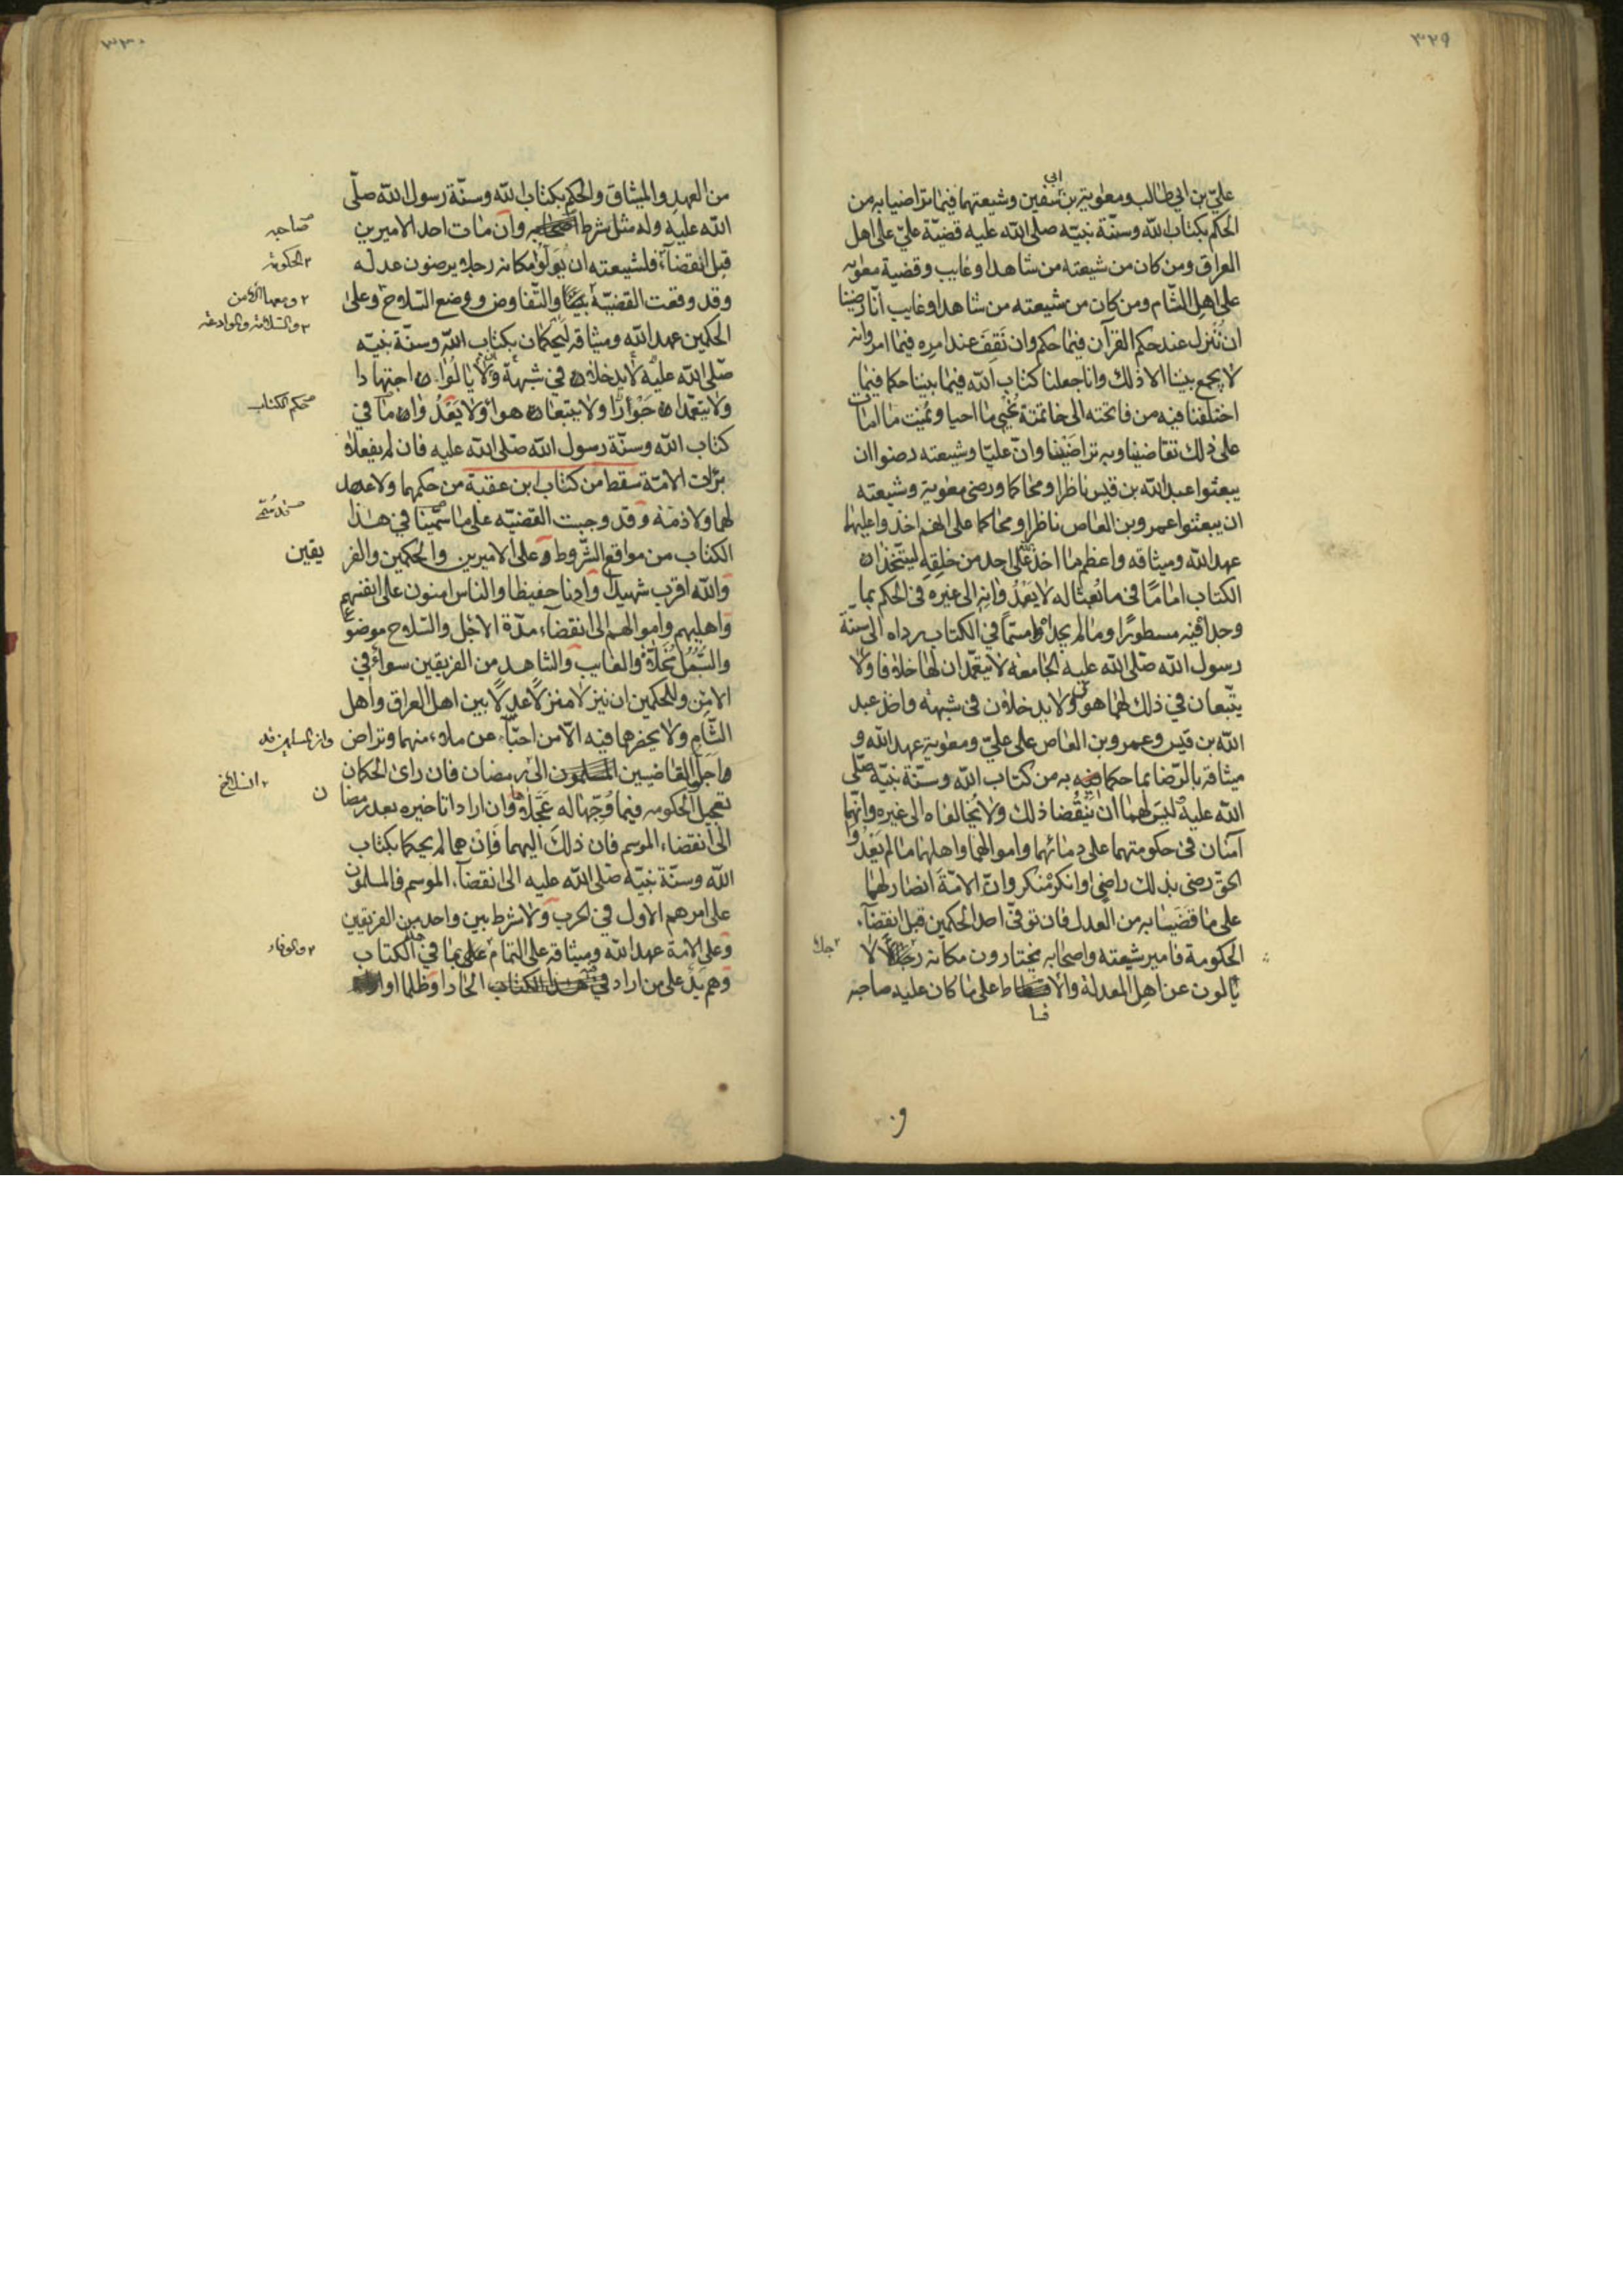 ٣٢٩
ابي
علي بن ابي طالب ومعوية بن سفين وشيعتهما فيما تراضيا به من
الحكم بكتاب الله وسنّة نبيّه صلى الله عليه قضيّة عليّ على اهل
العراق ومن كان من شيعته من شاهد او غايب وقضية معوية
على اهل الشام ومن كان من شيعته من شاهد او غايب انّا رضينا
ان ننزل عند حكم القرآن فيما حكم وان نقف عند امره فيما امر وانه
لا يجمع بيننا الا ذلك وانا جعلنا كتاب الله فيما بيننا حكما فيما
اختلفنا فيه من فاتحته الى خاتمته نحيي ما احيا ونميت ما امات
على ذلك تقاضينا وبه تراضينا وانّ عليّا وشيعته رضوا ان
يبعثوا عبد الله بن قيس ناظرا ومحاكما ورضى معوية وشيعته
ان يبعثوا عمرو بن العاص ناظرا ومحاكما على انهم اخذوا عليهما
عهد الله وميثاقه واعظم ما اخذ الله على احد من خلقه ليتّخذان
الكتاب امامًا في ما بعثا له لا يعدوانه الى غيره في الحكم بما
وجدا فيه مسطورًا وما لم يجداه مسمّا في الكتاب يرداه الى سنّة
رسول الله صلى الله عليه الجامعة لا يتعمّدان لها خلافا ولا
يتّبعان في ذلك لهما هوى ولا يدخلان في شبهة واخذ عبد
الله بن قيس وعمرو بن العاص على عليّ ومعوية عهد الله و
ميثاقه بالرّضا بما حكما به من كتاب الله وسنّة نبيّه صلّى
الله عليه ليس لهما ان ينقضا ذلك ولا يخالفاه الى غيره وانهما
آمنان في حكومتهما على دمائهما واموالهما واهلهما ما لم يعدوا
الحقّ رضى بذلك راضٍ او انكر منكر وانّ الامّة انصار لهما
على ما قضيا به من العدل فان توفّى احد الحكمين قبل انقضآء
الحكومة فامير شيعته واصحابه يختارون مكانه رجلا لا
يالون عن اهل المعدلة والاقساط على ما كان عليه صاحبه
٣٣٠
من العهد والميثاق والحكم بكتاب الله وسنّة رسول الله صلّى
الله عليه وله مثل شرط صاحبه وان مات احد الاميرين
قبل انقضآء فلشيعته ان يولّوا مكانه رجلا يرضون عدله
٢ الحكومة
وقد وقعت القضيّة بيننا والتّفاوض ووضع السّلاح وعلى
٢ ومعها الامن
٢ والسّلامة والموادعة
الحكمين عهد الله وميثاقه ليحكمان بكتاب الله وسنّة نبيّه
صلّى الله عليه لا يدخلان في شبهة ولا يالوان اجتهادا
ولا يتعمّدان جورًا ولا يتبعان هوا ولا يعدوان ما في
محكم الكتاب
كتاب الله وسنّة رسول الله صلّى الله عليه فان لم يفعلا
برأت الامّة سقط من كتاب ابن عقبة من حكمهما ولا عهد
لهما ولا ذمّة وقد وجبت القضيّه على ما سمّينا في هذا
الكتاب من مواقع الشّروط وعلى الاميرين والحكمين والفر
يقين
والله اقرب شهيدا وادنا حفيظا والناس امنون على انفسهم
واهليهم واموالهم الى انقضآء مدّة الاجل والسّلاح موضوع
والسّبل مخلاة والغايب والشاهد من الفريقين سواء في
الامن وللحكمين ان ينزلا منزلا عدلا بين اهل العراق واهل
الشّام ولا يحضرهما فيه الّا من احبّا عن ملاء منهما وتراض
واجل القاضيين المسلمون الى رمضان فان راى الحكمان
تعجيل الحكومه فيما وجّها له عجّلاها وان ارادا تاخيره بعد رمضا
ن
الى انقضاء الموسم فان ذلك اليهما فان هما لم يحكما بكتاب
الله وسنّة نبيّه صلى الله عليه الى انقضآء الموسم فالمسلمون
على امرهم الاول في الحرب ولا شرط بين واحد من الفريقين
وعلى الامة عهد الله وميثاقه على التمام على بما في الكتاب
٢ والوفاء
وهم يد على من اراد في هذا الكتاب الحادا وظلما او